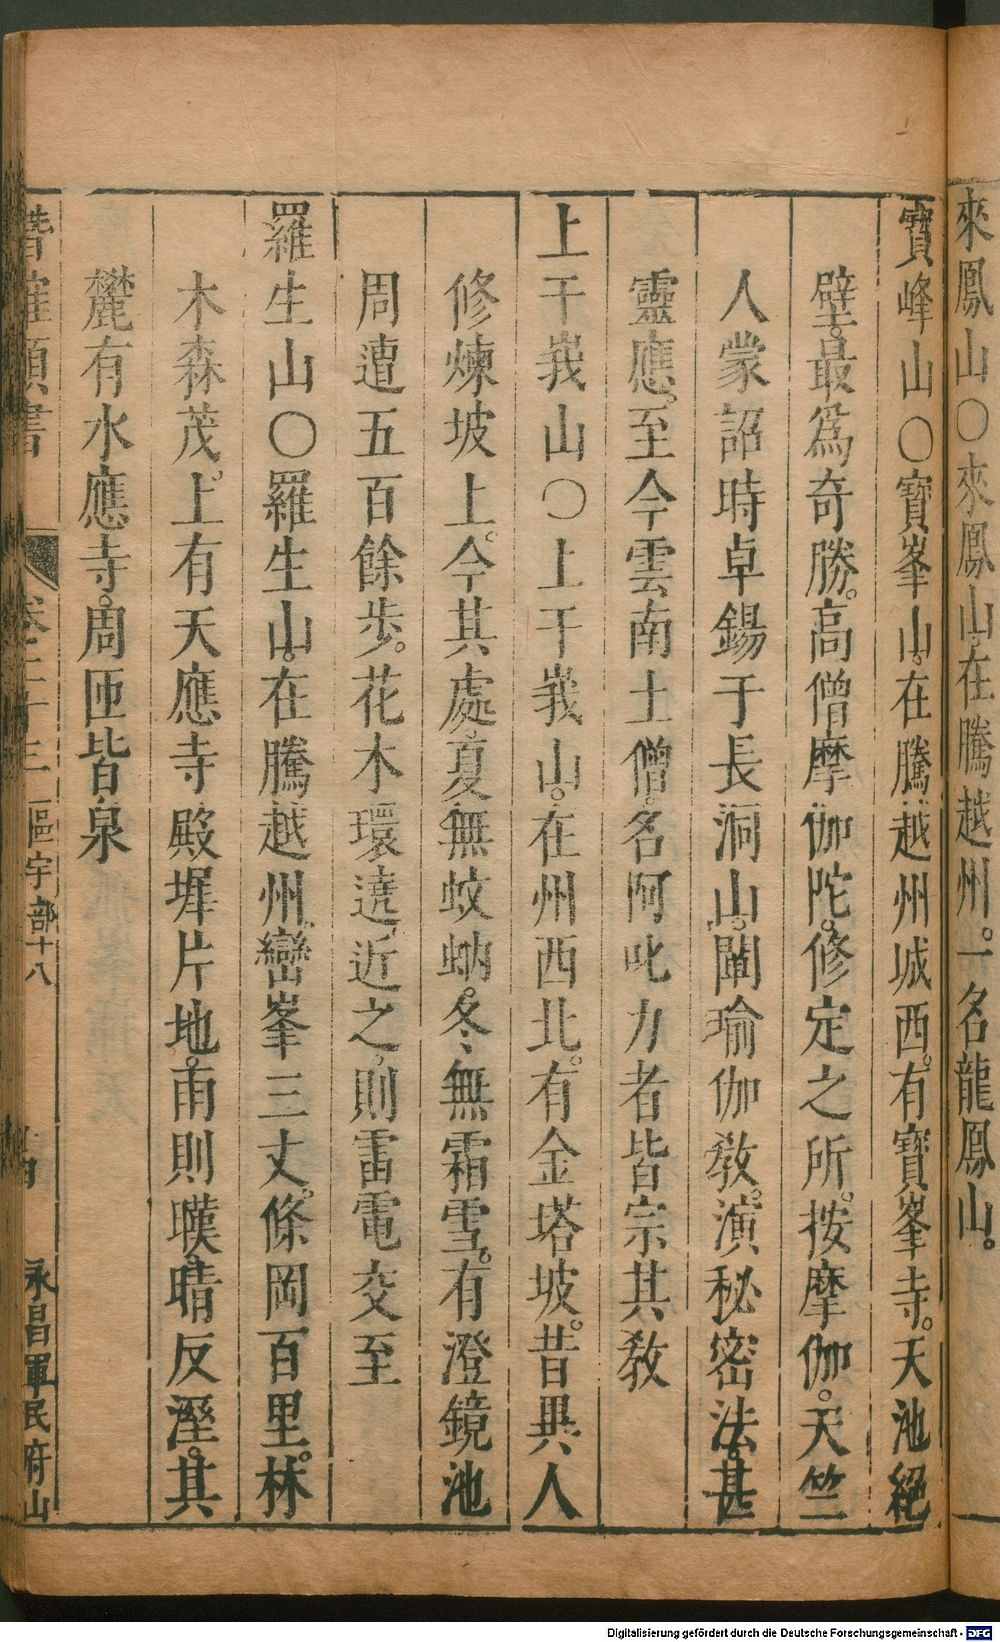 來鳳山○來鳳山。在騰越州。一名龍鳳山。
寶峰山○寶峯山。在騰越州城西。有寶峯寺。天池絕
壁。最爲奇勝。高僧摩伽陀。修定之所。按摩伽。天竺
人蒙詔時卓錫于長洞山。闡瑜伽敎。演秘密法。甚
靈應。至今雲南土僧。名阿叱力者皆宗其敎
上干峩山○上干峩山。在州西北。有金塔坡。昔異人
修煉坡上。今其處。夏無蚊蚋。冬無霜雪。有澄鏡池
周遭五百餘步。花木環遶。近之。則雷電交至
羅生山○羅生山。在騰越州。巒峯三丈。條岡百里。林
木森茂。上有天應寺殿墀片地。雨則暵。晴反溼。其
麓有水應寺。周匝皆泉
潛確類書
卷二十三 區宇部十八
永昌軍民府山
Digitalisierung gefördert durch die Deutsche Forschungsgemeinschaft - DFG